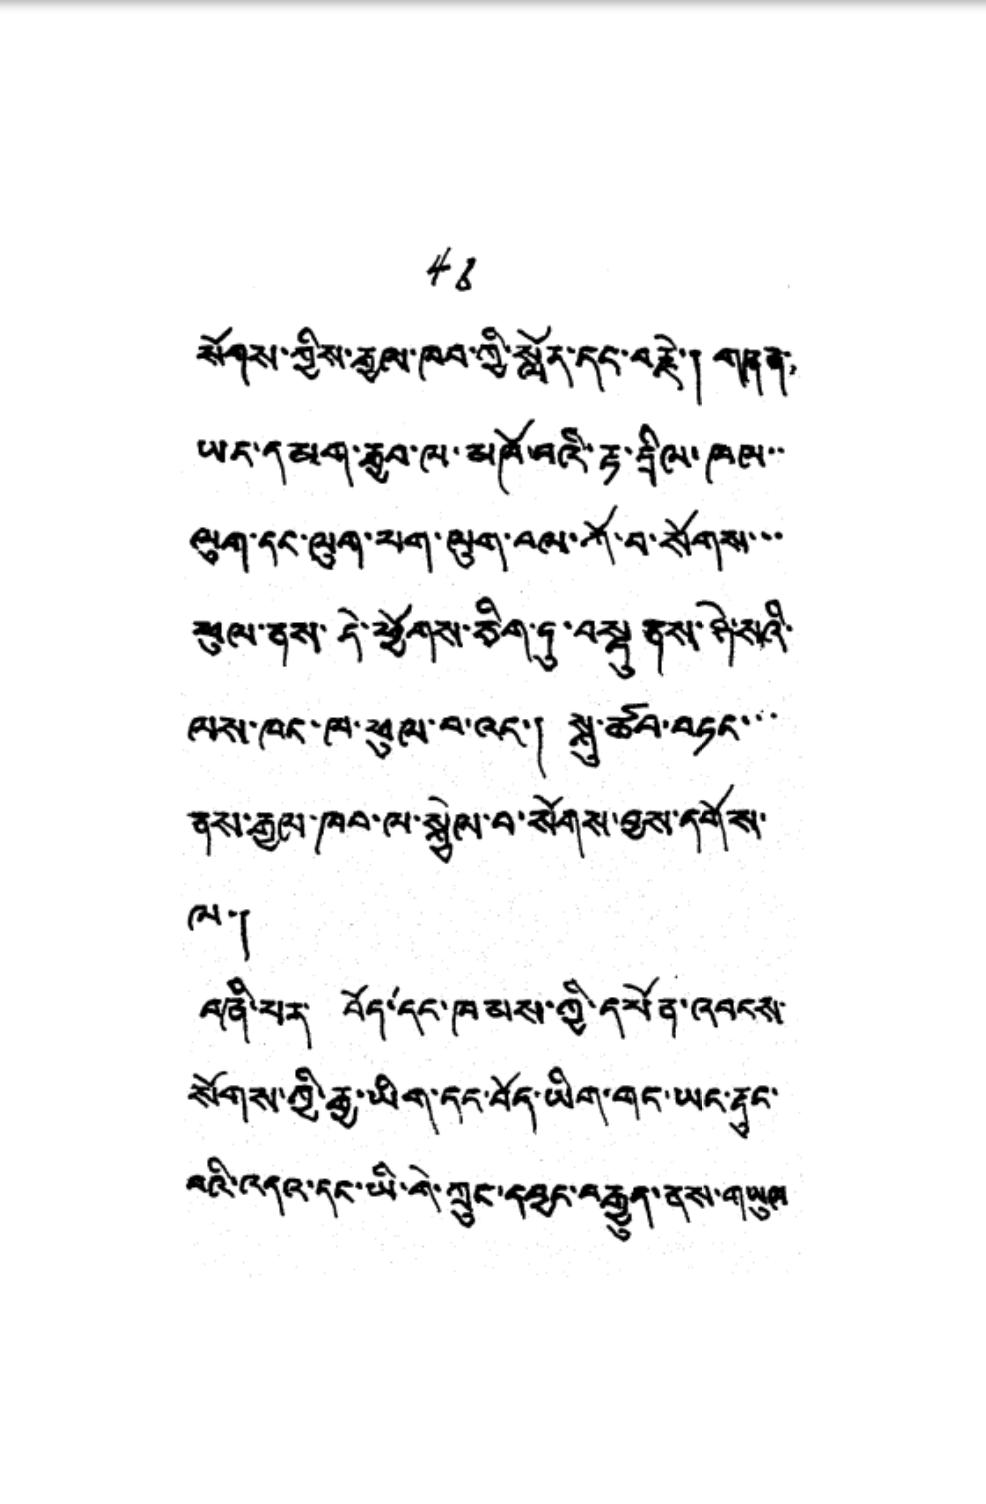 48
སོགས་ཀྱིས་རྒྱལ་ཁབ་ཀྱི་སྒོར་དང་བརྗེ་། གཞན་
ཡང་དམག་རྒྱབ་ལ་མཁོ་བའི་རྟ་དྲེལ་ཁལ་
ལུག་དང་ལུག་པག་ལུག་བལ་ཀོ་བ་སོགས་
ཕུལ་ནས་ དེ་ཕྱོགས་ཅིག་ཏུ་བསྡུ་ནས་
ལས་ཁང་ལ་ཕུལ་བ་འང་། སྐུ་ཚབ་བཏང་
ནས་རྒྱལ་ཁབ་ལ་སྐྱེལ་བ་སོགས་བྱས་དགོས་
ལ་།
བཞི་པར་ བོད་དང་ཁམས་ཀྱི་དཔོན་འབངས་
སོགས་ཀྱི་རྒྱ་ཡིག་དང་བོད་ཡིག་གང་ཡང་རུང་
བའི་འདའ་དང་ཡི་གེ་ཀྲུང་དབྱང་བརྒྱུད་ནས་གཡུལ